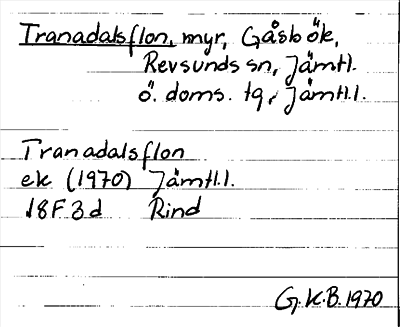 Tranadalsflon, myr, Gåsbök,
Revsunds sn, Jämtl.
ö. doms. tg, Jämtl.l.
Tranadalsflon
ek (1970) Jämtl.l.
18F3d Rind
G.K.B. 1970